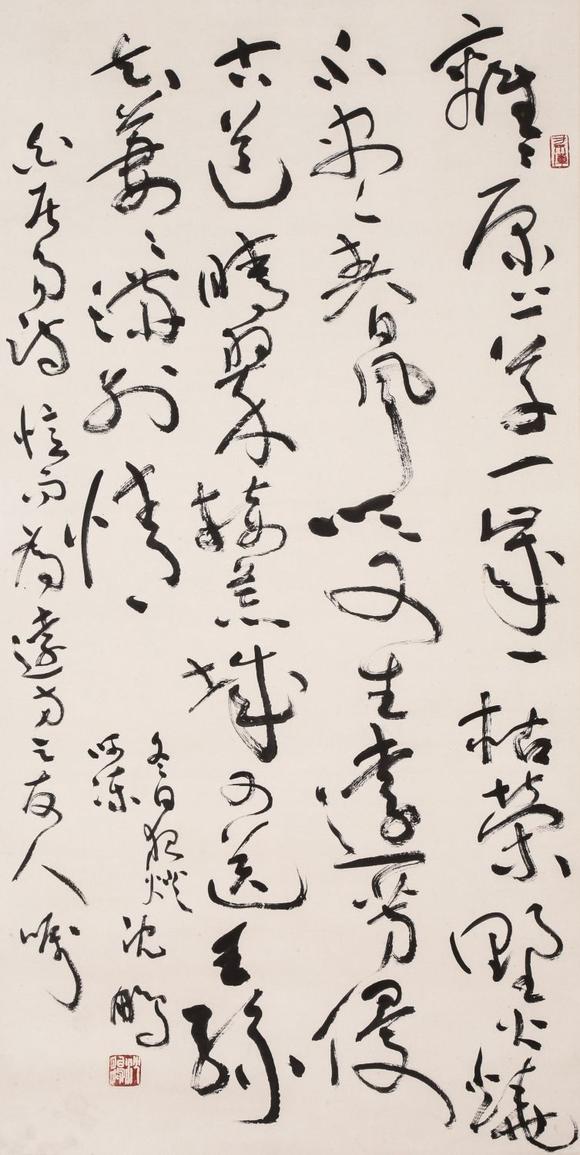 離々原上草一歲一枯榮野火燒
不盡春風吹又生遠芳侵
古道晴翠接荒城又送王孫
去萋々滿別情
白居易詩憶而為遠方之友人囑
冬日夜燈
呵凍
沈鵬